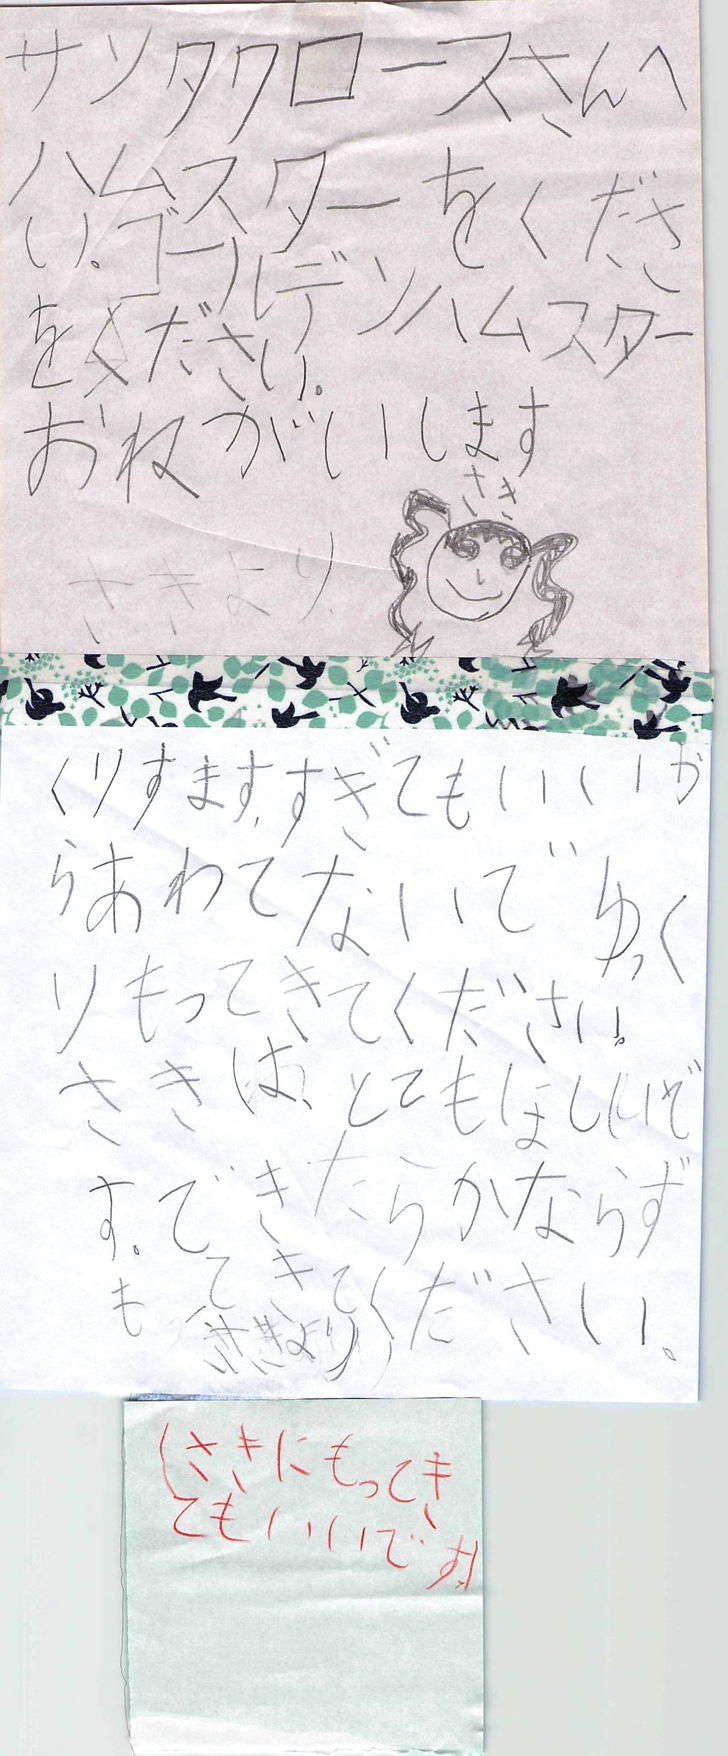 サンタクロースさんへ
ハムスターをくださ
い。ゴールデンハムスター
をください。
おねがいします
さき
さきより
くりすますすぎてもいいか
らあわてないでゆっく
りもってきてください。
さきは、とてもほしいで
す。できたらかならず
もってきてください。
(さきより)
(さきにもってき
てもいいです)